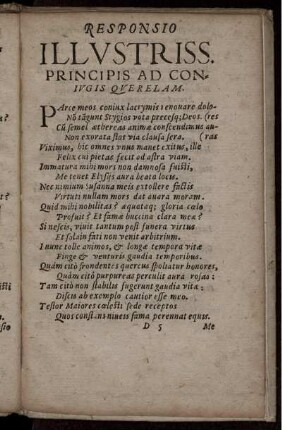 RESPONSIO
ILLVSTRISS.
PRINCIPIS AD CON,
IVGIS QVERELAM.
PArce meos coniux lacrymis renouare dolo-
Nō tāgunt Stygios vota precesq; Deos. (res
Cū semel æthereas anima conscendimus au-
Non exorata stat via clausa sera. (ras
Viximus, hic omnes vnus manet exitus, illa
Felix cui pietas fecit ad astra viam.
Immatura mihi mors non damnosa fuisti,
Me tenet Elysijs aura beata locis.
Nec nimium Susanna meis extollere factis
Virtuti nullam mors dat auara moram.
Quid mihi nobilitas? aquatæq; gloria cœlo
Profuit? Et famæ buccina clara meæ?
Si nescis, viuit tantum post funera virtus
Et solùm fati non venit arbitrium.
I nunc tolle animos, & longæ tempora vitæ
Finge & venturis gaudia temporibus.
Quàm citò frondentes quercus spoliatur honores,
Quàm citò purpureas perculit aura rosas:
Tam citò non stabilis fugerunt gaudia vitæ:
Discis ab exemplo cautior esse meo.
Testor Maiores cœlesti sede receptos
Quos niueis fama perennat equis.
D 5 Me